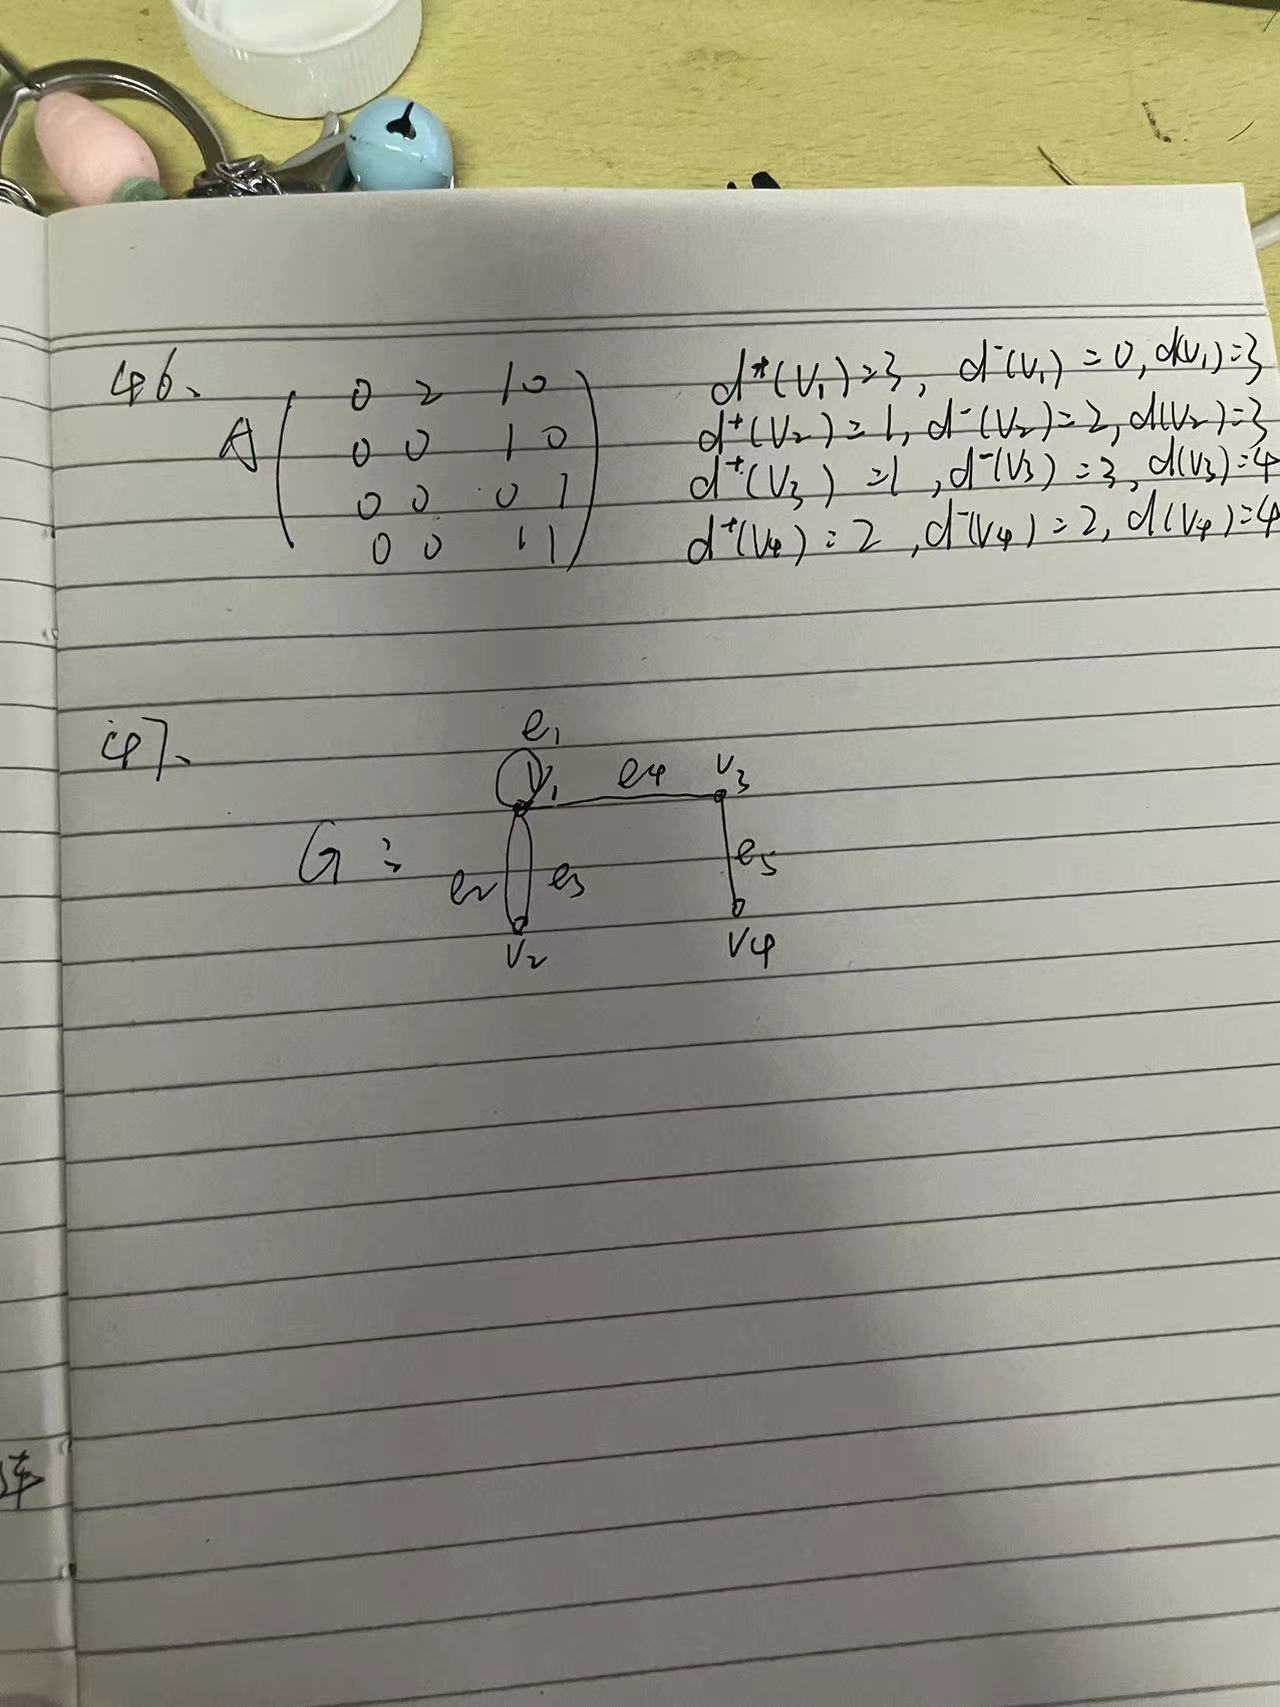 46、
A ( 0 2 1 0 )
0 0 1 0
0 0 0 1
0 0 1 1
d⁺(V₁)=3, d⁻(V₁)=0, d(V₁)=3
d⁺(V₂)=1, d⁻(V₂)=2, d(V₂)=3
d⁺(V₃)=1, d⁻(V₃)=3, d(V₃)=4
d⁺(V₄)=2, d⁻(V₄)=2, d(V₄)=4
47、
e₁
V₁ e₄ V₃
G: e₂ e₃ e₅
V₂ V₄